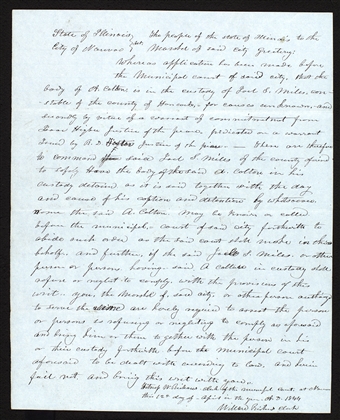 State of Illinois, The people of the state of Illinois to the
City of Nauvoo Sct. Marshal of said City Greeting:
Whereas application has been made before
the Municipal court of said city, that the
body of A. Colton is in the custody of Joel S. Miles, con-
stable of the county of Hancock, for causes unknown, and
secondly by virtue of a warrant of commitment from
Isaac Higbee Justice of the peace, predicated on a warrant
Issued by R. D. Foster Justice of the peace — These are therefore
to command said Joel S. Miles of the county aforesaid
to safely Have the body of the said A. Colton in his
custody detained as it is said together with the day
and cause of his caption and detention by whatsoever
name the said A. Colton may be known or called
before the municipal court of said city forthwith to
abide such order as the said court shall make in this
behalf, and further, if the said Joel S. Miles or other
person or persons having said A Colton in custody shall
refuse or neglect to comply with the provisions of this
writ you, the Marshal of said city, or other person authorized
to serve the same are hereby required to arrest the person
or persons so refusing or neglecting to comply as aforesaid
and bring him or them together with the person in his
or their custody forthwith before the municipal court
aforesaid to be dealt with according to law, and herein
fail not, and bring this writ with you.
Witness W. Richards clerk of the municipal court at Nauvoo
this 15th day of April in the year A.D. 1844
Willard Richards Clerk